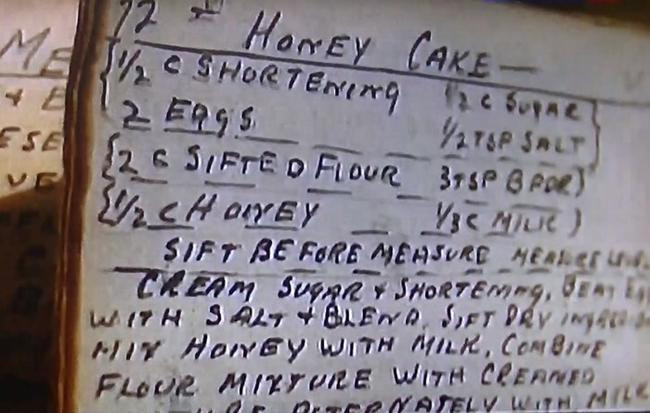 ME
12 - HONEY CAKE -
{1/2 C SHORTENING 1/2 C SUGAR
& E
2 EGGS 1/2 TSP SALT}
ESE
{2 C SIFTED FLOUR 3 TSP B POR}
VE
{1/2 C HONEY 1/3 C MILK}
SIFT BEFORE MEASURE MEASURE LEVEL
CREAM SUGAR & SHORTENING, BEAT EG
WITH SALT & BLEND, SIFT DRY INGREDI
MIX HONEY WITH MILK, COMBINE
FLOUR MIXTURE WITH CREAMED
URE ALTERNATELY WITH MILK